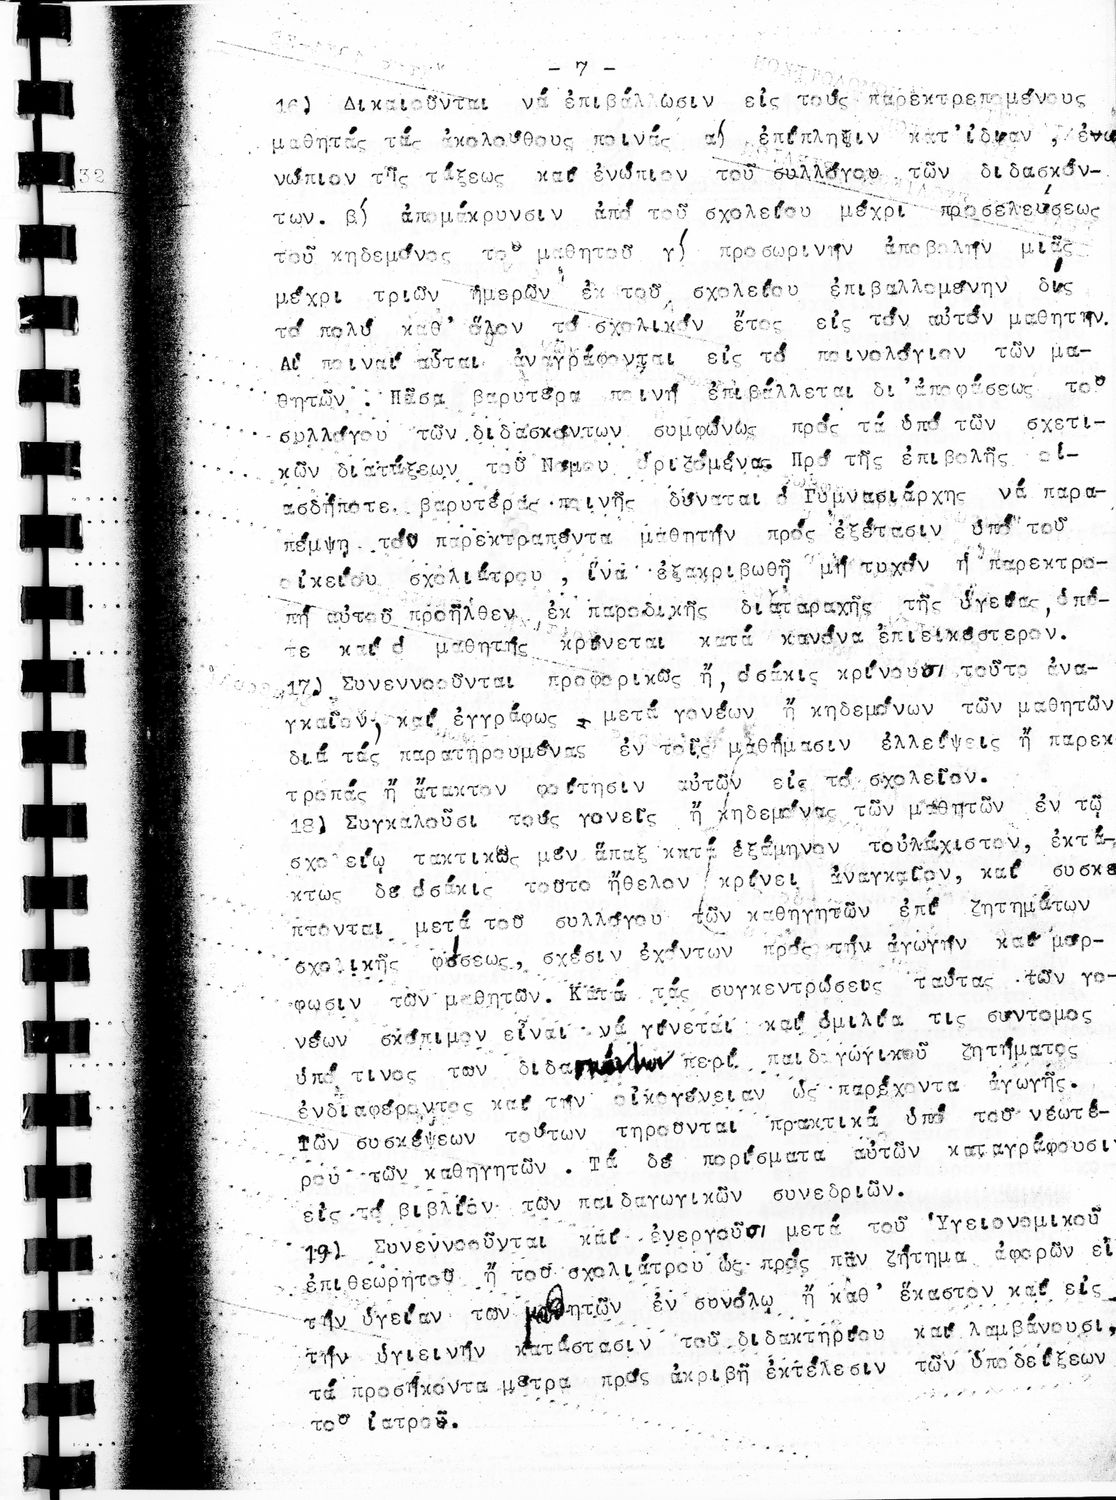 - 7 -
16) Δικαιοῦνται νά ἐπιβάλλωσιν εἰς τούς παρεκτρεπομένους
μαθητάς τάς ἀκολούθους ποινάς α) ἐπίπληξιν κατ'ἰδίαν , ἐνώ
νώπιον τῆς τάξεως καί ἐνώπιον τοῦ συλλόγου τῶν διδασκόν-
των. β) ἀπομάκρυνσιν ἀπό τοῦ σχολείου μέχρι προσελεύσεως
τοῦ κηδεμόνος τοῦ μαθητοῦ γ) προσωρινήν ἀποβολήν μιᾶς
μέχρι τριῶν ἡμερῶν ἐκ τοῦ σχολείου ἐπιβαλλομένην δίς
τό πολύ καθ' ὅλον τό σχολικόν ἔτος εἰς τόν αὐτόν μαθητήν.
Αἱ ποιναί αὗται ἀναγράφονται εἰς τό ποινολόγιον τῶν μα-
θητῶν . Πᾶσα βαρυτέρα ποινή ἐπιβάλλεται δι'ἀποφάσεως τοῦ
συλλόγου τῶν διδασκόντων συμφώνως πρός τά ὑπό τῶν σχετι-
κῶν διατάξεων τοῦ Νόμου ὁριζόμενα. Πρό τῆς ἐπιβολῆς οἱ-
ασδήποτε βαρυτέρας ποινῆς δύναται ὁ Γυμνασιάρχης νά παρα-
πέμψῃ τόν παρεκτραπέντα μαθητήν πρός ἐξέτασιν ὑπό τοῦ
οἰκείου σχολιάτρου , ἵνα ἐξακριβωθῇ μή τυχόν ἡ παρεκτρο-
πή αὐτοῦ προῆλθεν ἐκ παροδικῆς διαταραχῆς τῆς ὑγείας, ὁπό-
τε καί ὁ μαθητής κρίνεται κατά κανόνα ἐπιεικέστερον.
17) Συνεννοοῦνται προφορικῶς ἤ, ὁσάκις κρίνουσι τοῦτο ἀνα-
γκαῖον, καί ἐγγράφως μετά γονέων ἤ κηδεμόνων τῶν μαθητῶν
διά τάς παρατηρουμένας ἐν τοῖς μαθήμασιν ἐλλείψεις ἤ παρεκ
τροπάς ἤ ἄτακτον φοίτησιν αὐτῶν εἰς τό σχολεῖον.
18) Συγκαλοῦσι τούς γονεῖς ἤ κηδεμόνας τῶν μαθητῶν ἐν τῷ
σχολείῳ τακτικῶς μέν ἅπαξ κατά ἑξάμηνον τοὐλάχιστον, ἐκτά-
κτως δέ ὁσάκις τοῦτο ἤθελον κρίνει ἀναγκαῖον, καί συσκέ
πτονται μετά τοῦ συλλόγου τῶν καθηγητῶν ἐπί ζητημάτων
σχολικῆς φύσεως, σχέσιν ἐχόντων πρός τήν ἀγωγήν καί μόρ-
φωσιν τῶν μαθητῶν. Κατά τάς συγκεντρώσεις ταύτας τῶν γο-
νέων σκόπιμον εἶναι νά γίνεται καί ὁμιλία τις σύντομος
ὑπό τινος τῶν διδασκόντων περί παιδαγωγικοῦ ζητήματος
ἐνδιαφέροντος καί τήν οἰκογένειαν ὡς παρέχοντα ἀγωγῆς.
Τῶν συσκέψεων τούτων τηροῦνται πρακτικά ὑπό τοῦ νεωτέ-
ρου τῶν καθηγητῶν . Τά δέ πορίσματα αὐτῶν καταγράφουσιν
εἰς τό βιβλίον τῶν παιδαγωγικῶν συνεδριῶν.
19) Συνεννοοῦνται καί ἐνεργοῦσι μετά τοῦ Ὑγειονομικοῦ
ἐπιθεωρητοῦ ἤ τοῦ σχολιάτρου ὡς πρός πᾶν ζήτημα ἀφορῶν εἰ
τήν ὑγείαν τῶν μαθητῶν ἐν συνόλῳ ἤ καθ' ἕκαστον καί εἰς
τήν ὑγιεινήν κατάστασιν τοῦ διδακτηρίου καί λαμβάνουσι,
τά προσήκοντα μέτρα πρός ἀκριβῆ ἐκτέλεσιν τῶν ὑποδείξεων
τοῦ ἰατροῦ.
32